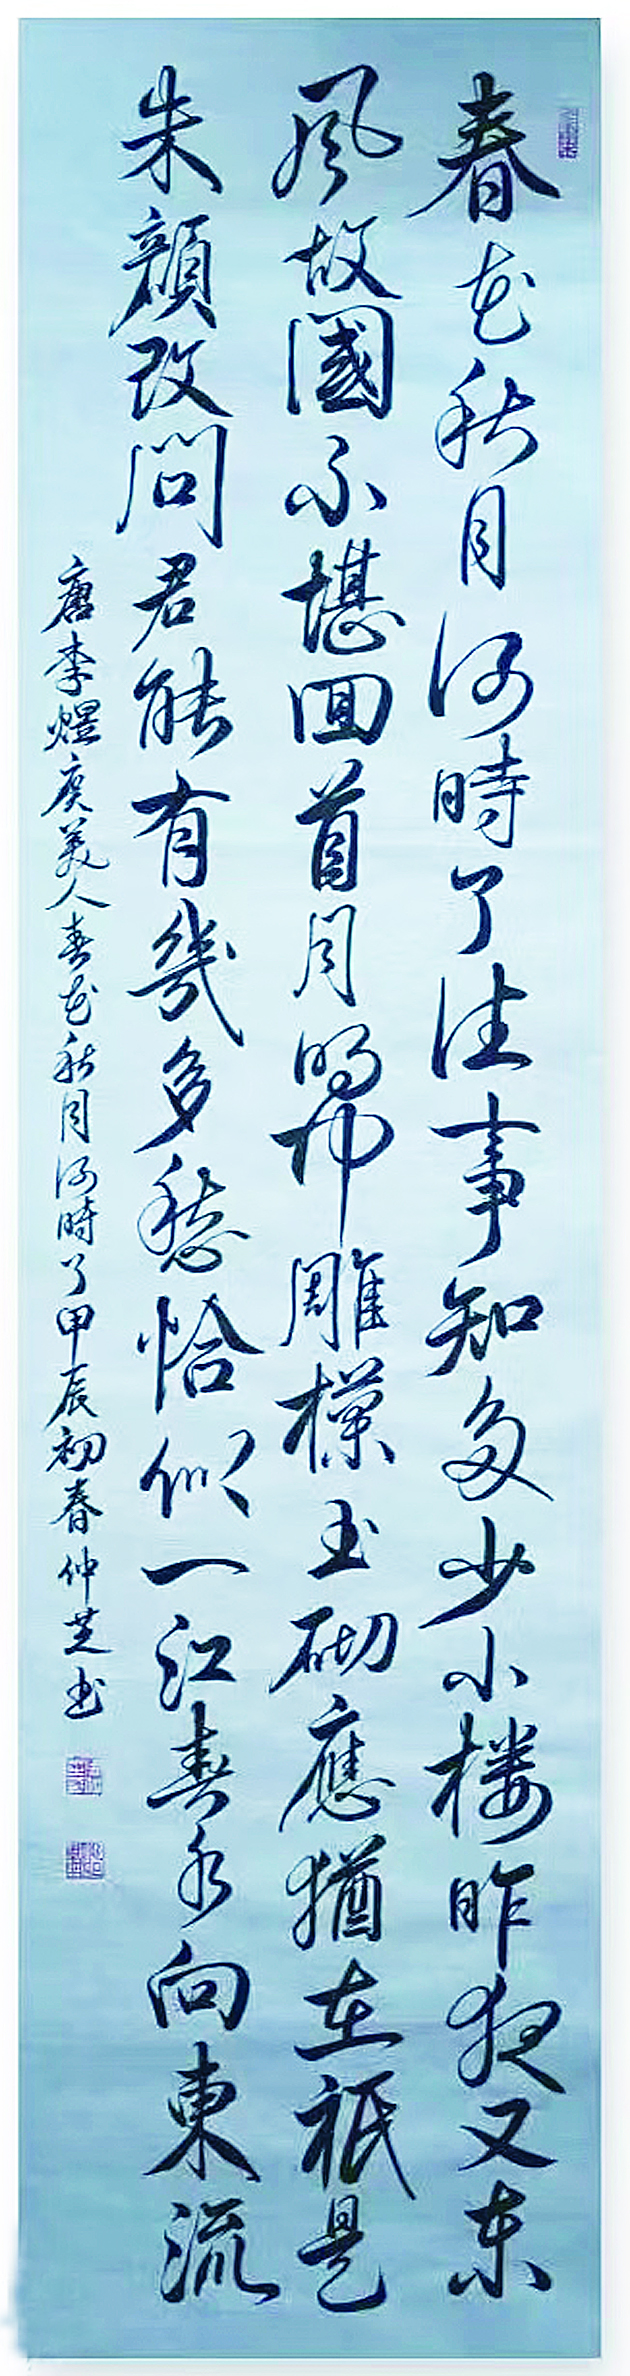 春花秋月何時了往事知多少小楼昨夜又东
風故國不堪囬首月明中雕欄玉砌應猶在祇是
朱顔改問君能有幾多愁恰似一江春水向東流
唐李煜虞美人春花秋月何時了甲辰初春仲芝书